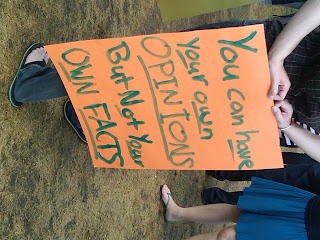 You can have
Your own
OPINIONS
But Not Your
OWN FACTS